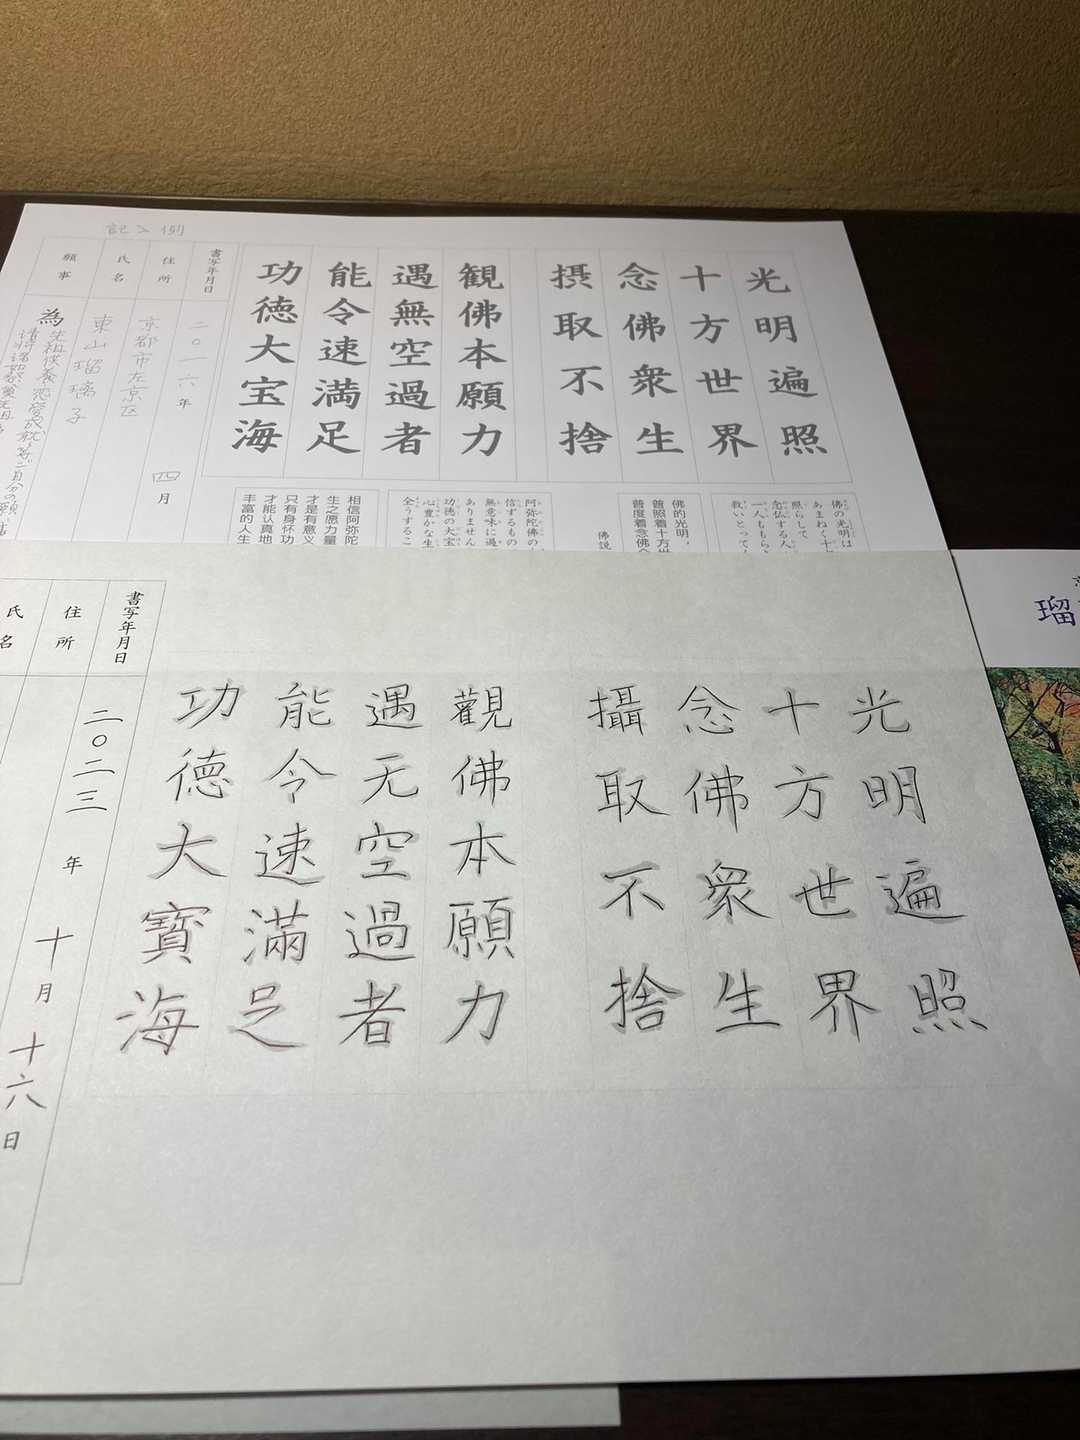 記入例
光明遍照
十方世界
念佛衆生
摂取不捨
観佛本願力
遇無空過者
能令速満足
功徳大宝海
書写年月日
二〇一六年
四月
住所
京都市左京区
氏名
東山瑠璃子
願事
為
佛の光明は
あまねく十
照らして
念仏する人
一人ももら
救いとって
佛的光明，
普照着十方世
普度着念佛众
佛説
阿弥陀佛の
信ずるもの
無意味に過
ありません
功徳の大宝
心豊かな生
全うするこ
相信阿弥陀
生之愿力量
才是有意义
只有身怀功
才能认真地
丰富的人生
光明遍照
十方世界
念佛衆生
攝取不捨
觀佛本願力
遇无空過者
能令速滿足
功德大寶海
書写年月日
二〇二三年十月十六日
住所
氏名
瑠